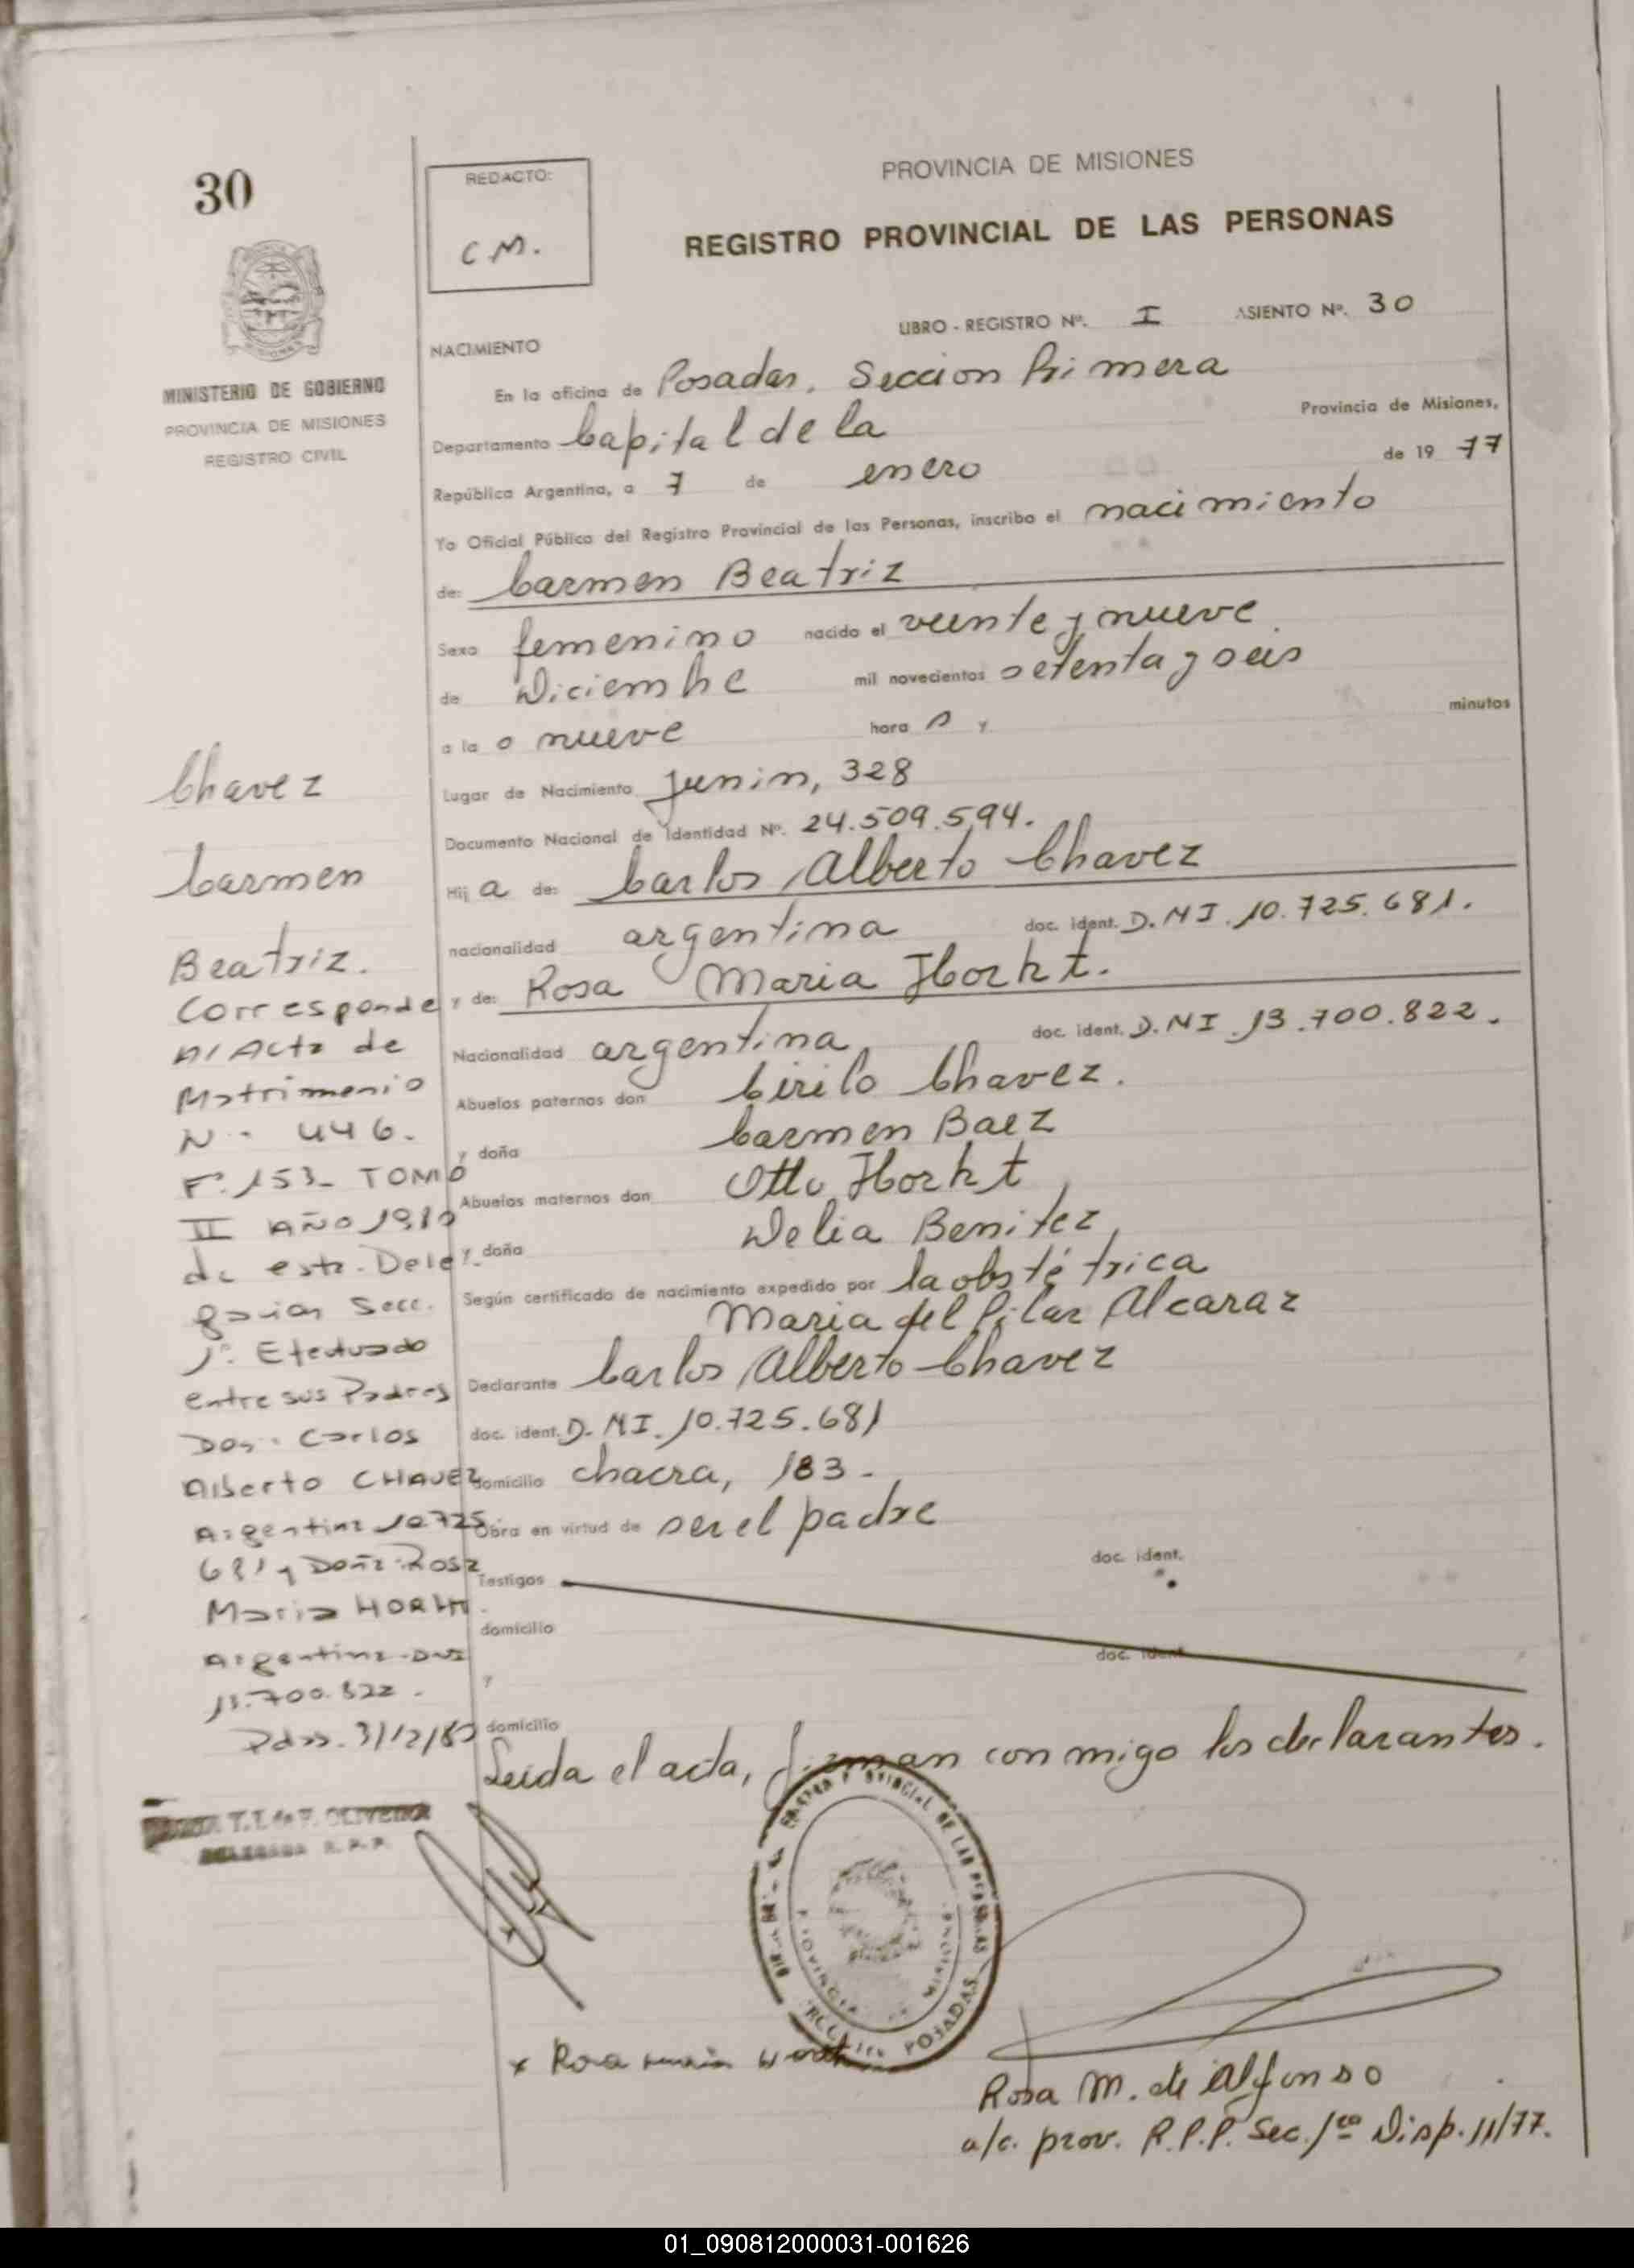 30
REDACTO:
C.M.
PROVINCIA DE MISIONES
REGISTRO PROVINCIAL DE LAS PERSONAS
MINISTERIO DE GOBIERNO
PROVINCIA DE MISIONES
REGISTRO CIVIL
LIBRO - REGISTRO Nº. I ASIENTO Nº. 30
NACIMIENTO
En la oficina de Posadas, Seccion Primera
Departamento Capital de la Provincia de Misiones,
República Argentina, a 7 de enero de 19 77
Yo Oficial Público del Registro Provincial de las Personas, inscribo el nacimiento
de: Carmen Beatriz
Sexo femenino nacido el veinte y nueve
de Diciembre mil novecientos setenta y seis
a la s nueve hora s y minutos
Lugar de Nacimiento Junin, 328
Documento Nacional de Identidad Nº. 24.509.594.
Hij a de: Carlos Alberto Chavez
nacionalidad argentina doc. ident. D.N.I. 10.725.681.
y de: Rosa Maria Horht.
Nacionalidad argentina doc. ident. D.N.I. 13.700.822.
Abuelos paternos don Cirilo Chavez.
y doña Carmen Baez
Abuelos maternos don Otto Horht
y doña Delia Benitez
Según certificado de nacimiento expedido por la obstétrica
Maria del Pilar Alcaraz
Declarante Carlos Alberto Chavez
doc. ident. D.N.I. 10.725.681
domicilio chacra, 183.
Obra en virtud de ser el padre
Testigos doc. ident.
domicilio
y doc. ident.
domicilio
Leida el acta, firman conmigo los declarantes.
Chavez
Carmen
Beatriz.
Corresponde
Al Acta de
Matrimonio
N. 446.
Fº. 153 - TOMO
II AÑO 1980
de esta Dele
gacion Secc.
1º. Efectuado
entre sus Padres
Don: Carlos
Alberto CHAVEZ
Argentino 10725
681 y Doña: Rosa
Maria HORHT.
Argentina
13.700.822.
Pdas. 3/12/80
T.I. de F. OLIVEIRA
DELEGADA R.P.P.
PROVINCIAL DE LAS PERSONAS
PROVINCIA DE MISIONES
POSADAS
x Rosa maria
Rosa M. de Alfonso
a/c. prov. R.P.P. Sec. 1ra Disp. 11/77.
01_090812000031-001626